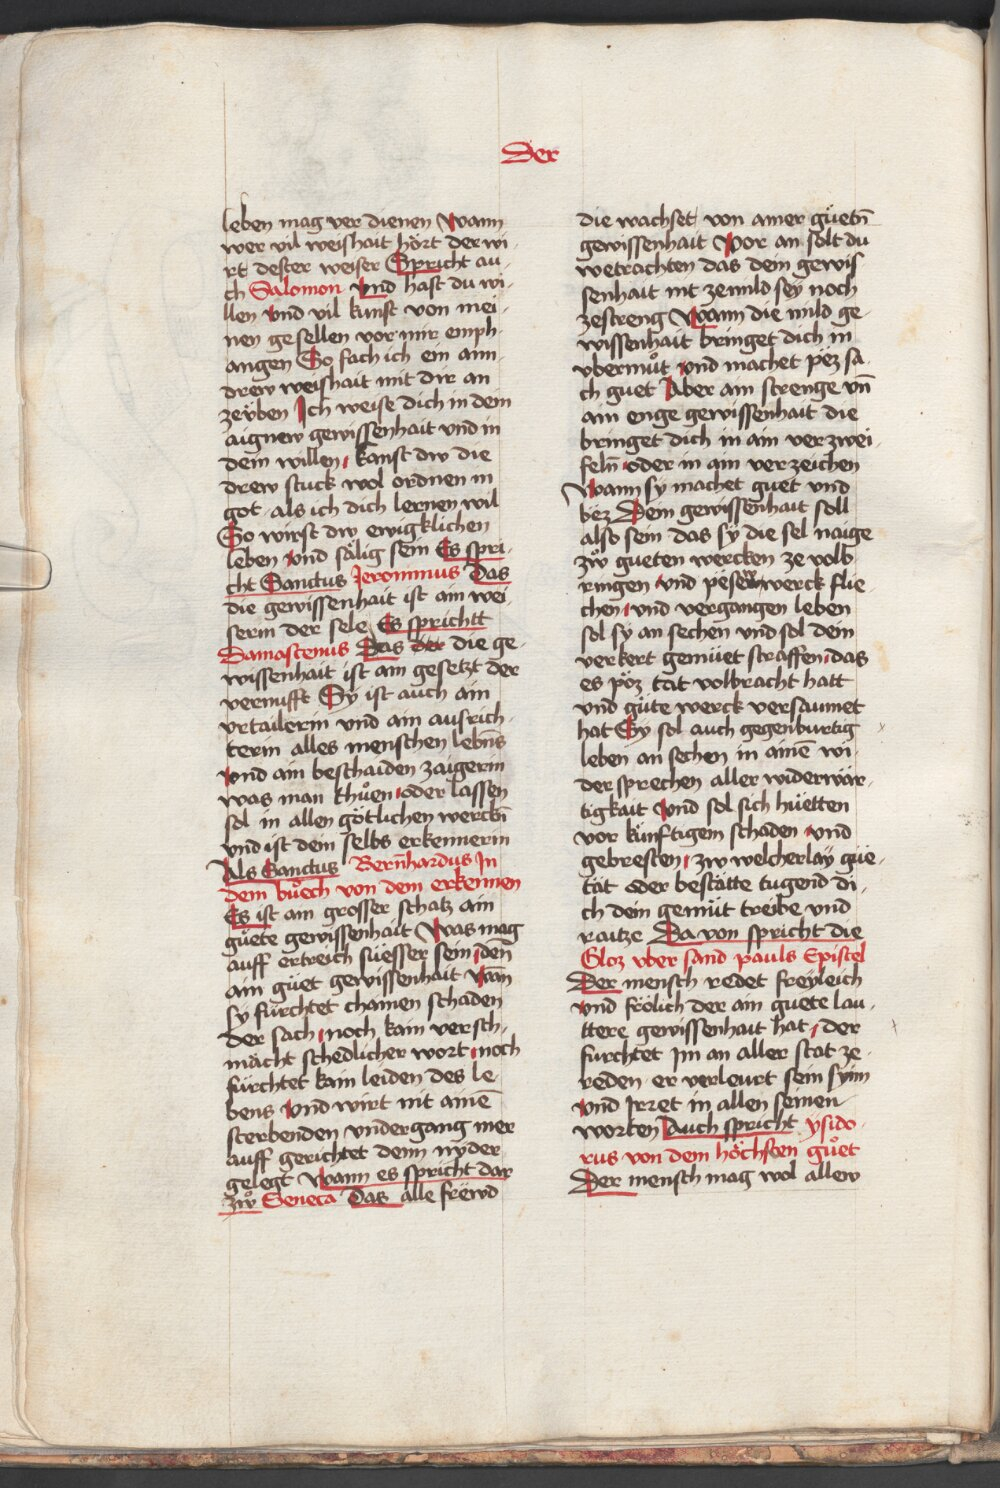 Der
leben mag ver dienen Wann
wer vil weishait hört der wi-
rt dester weiser Spricht au-
ch Salomon Vnd hast du wi-
llen vnd vil kunst von mei-
nen gesellen vor mir emph-
angen So fach ich ein ann-
drew weishait mit dir an
zeÿben Ich weise dich in dein
aignew gewissenhait vnd in
dein willen, kanst dw die
drew stuck wol ordnen in
got als ich dich lernen wil
So wirst dw ewigklichen
leben vnd sälig sein Es spri-
cht Sanctus Jeronimus Das
die gewissenhait ist ain wei-
serin der sele Es sprichtt
Damascenus Das der die ge-
wissenhait ist ain gesetzt der
vernufft Sy ist auch ain
vrtailerin vnd ain ausrich-
terin alles menschen lebñs
vnd ain beschaiden zaigerin
was man thůen oder lassen
sol in allen götlichen werckñ
vnd ist dein selbs erkennerin
Als Sanctus Berñhardus In
dem bůech von dem erkennen
Es ist ain grosser schatz ain
güete gewissenhait Was mag
auff ertreich süesser sein den̄
ain güet gewissenhait wan̄
sy fürchtet chainen schaden
der sach noch kain versch-
mächt schedlicher wort noch
fürchtet kain leiden des le-
bens vnd wirt nit ainē
sterbenden vndergang mer
auff gerichtet denn nyder
gelegt Wann es spricht dar
zẘ Seneca Das alle frëwd
die wachset von ainer güetñ
gewissenhait Vor an solt du
wetrachten das dein gewis
senhait nit ze mild seÿ noch
ze streng Wann die mild ge-
wissenhait bringet dich in
vbermůt vnd machet pëz sa-
ch guet Aber ain strenge vn̄
ain enge gewissenhait die
bringet dich in ain verzwei-
feln̄ oder in ain verzeichen
Wann sy machet guet vnd
bëz Dein gewissenhait soll
also sein das sÿ die sel naige
zẘ gueten wercken ze volb-
ringen vnd pësew werck flie-
chen vnd vergangen leben
sol sy an sechen vnd sol dein
verkert gemüet straffen das
es pöz tät volbracht hatt
vnd güte werck versaumet
hat Sy sol auch gegenburtig
leben an sechen in ainē wi-
der sprechen aller widerwär-
tigkait Vnd sol sich hüetten
vor künftigem schaden vnd
gebresten, zw welcherlaÿ güe-
tät oder bestätte tugend di-
ch dein gemüt treibe vnd
raitze Da von spricht die
Gloz vber sand pauls Epistel
Der mensch redet freÿleich
vnd frölich der ain guete lau-
ttere gewissenhait hat, der
fürchtet im an aller stat ze-
reden er verleurt sein synn
vnd Irret in allen seinen
worten Auch spricht ÿsido-
rus von dem höchsten gůet
Der mensch mag wol allew